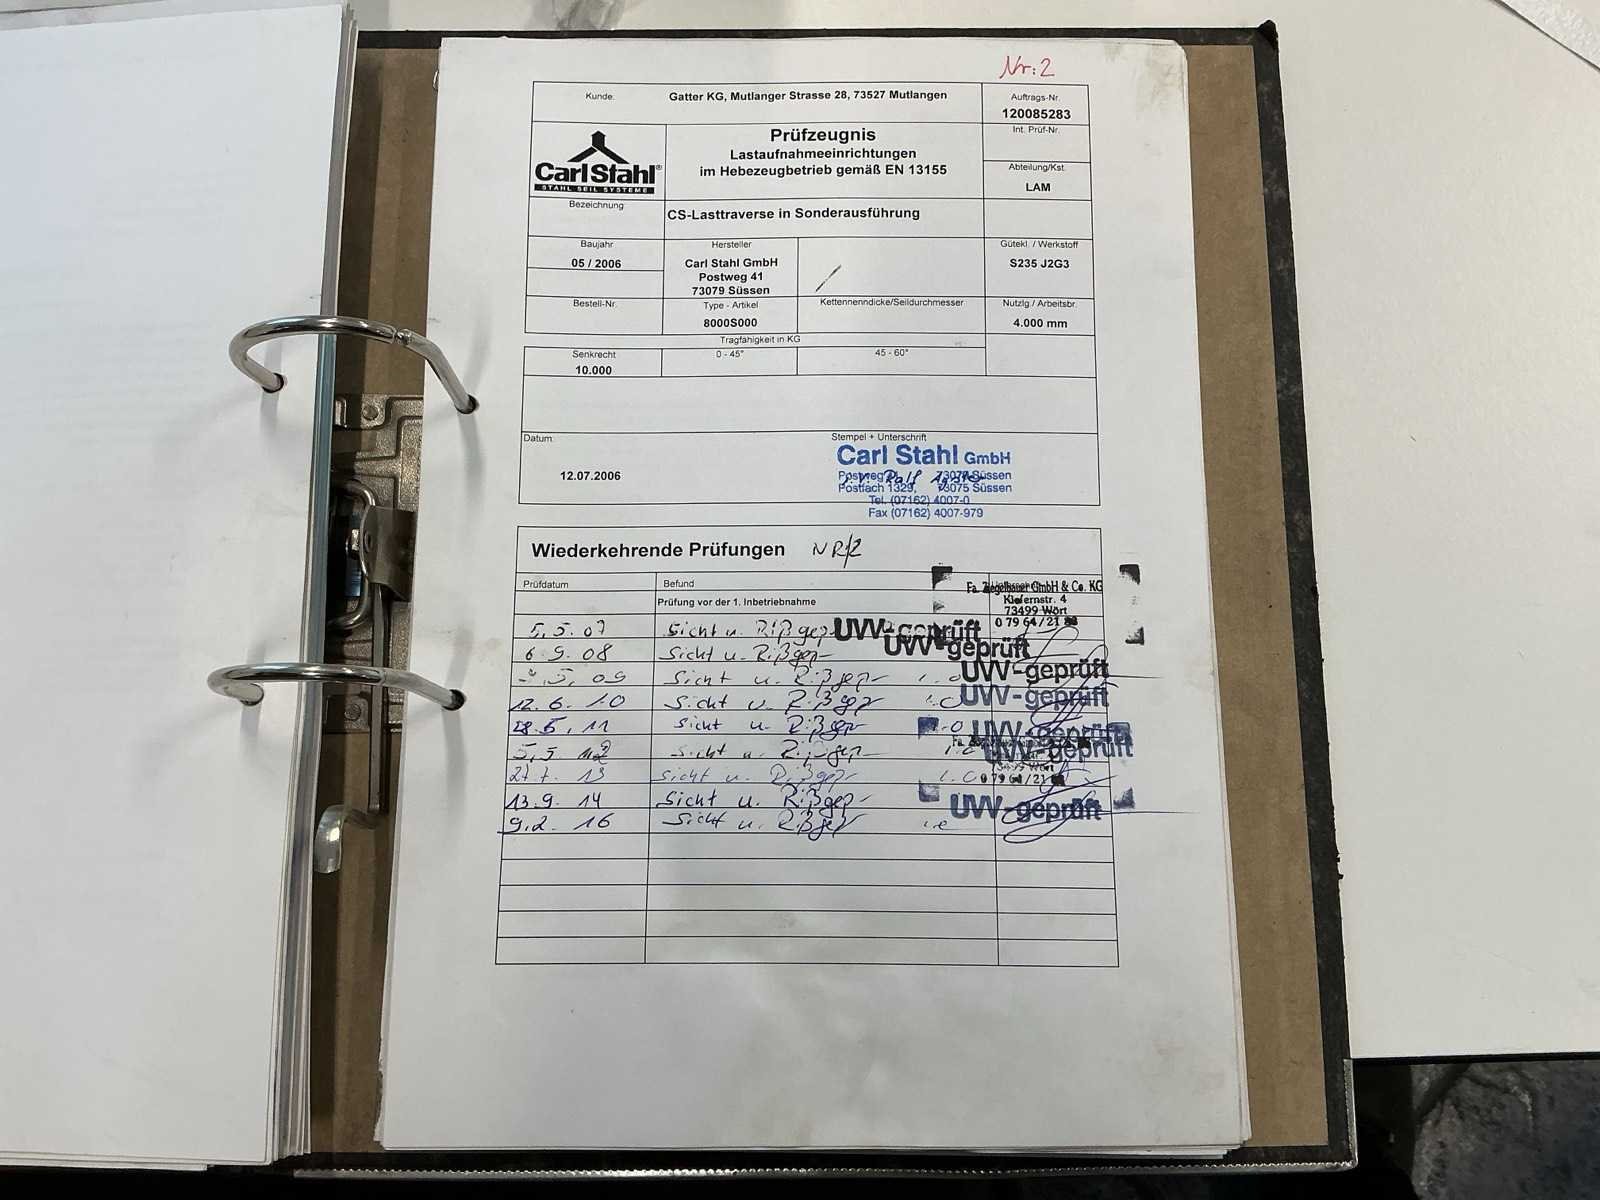 Nr: 2
Kunde: Gatter KG, Mutlanger Strasse 28, 73527 Mutlangen
Auftrags-Nr.
120085283
Carl Stahl®
STAHL SEIL SYSTEME
Prüfzeugnis
Lastaufnahmeeinrichtungen
im Hebezeugbetrieb gemäß EN 13155
Int. Prüf-Nr.
Abteilung/Kst.
LAM
Bezeichnung
CS-Lasttraverse in Sonderausführung
Baujahr
05 / 2006
Hersteller
Carl Stahl GmbH
Postweg 41
73079 Süssen
Gütekl. / Werkstoff
S235 J2G3
Bestell-Nr.
Type - Artikel
8000S000
Kettennenndicke/Seildurchmesser
Nutzlg./ Arbeitsbr.
4.000 mm
Tragfähigkeit in KG
Senkrecht
10.000
0 - 45°
45 - 60°
Datum:
12.07.2006
Stempel + Unterschrift
Carl Stahl GmbH
Postweg 73079 Süssen
Postfach 1329, 73075 Süssen
Tel. (07162) 4007-0
Fax (07162) 4007-979
Wiederkehrende Prüfungen NR/2
Prüfdatum
Befund
Fa. GmbH & Co. KG
Kiefernstr. 4
73499 Wört
0 79 64/21
Prüfung vor der 1. Inbetriebnahme
5.5.07 Sicht u. Rißgepr UVV-geprüft
6.9.08 Sicht u. Rißgepr UVV-geprüft
5.09 Sicht u. Rißgepr UVV-geprüft
12.6.10 Sicht u. Rißgepr UVV-geprüft
28.5.11 Sicht u. Rißgepr UVV-geprüft
5.5.12 Sicht u. Rißgepr UVV-geprüft
13 Sicht u. Rißgepr 0 79 64/21
13.9.14 Sicht u. Rißgepr UVV-geprüft
9.2.16 Sicht u. Rißgepr